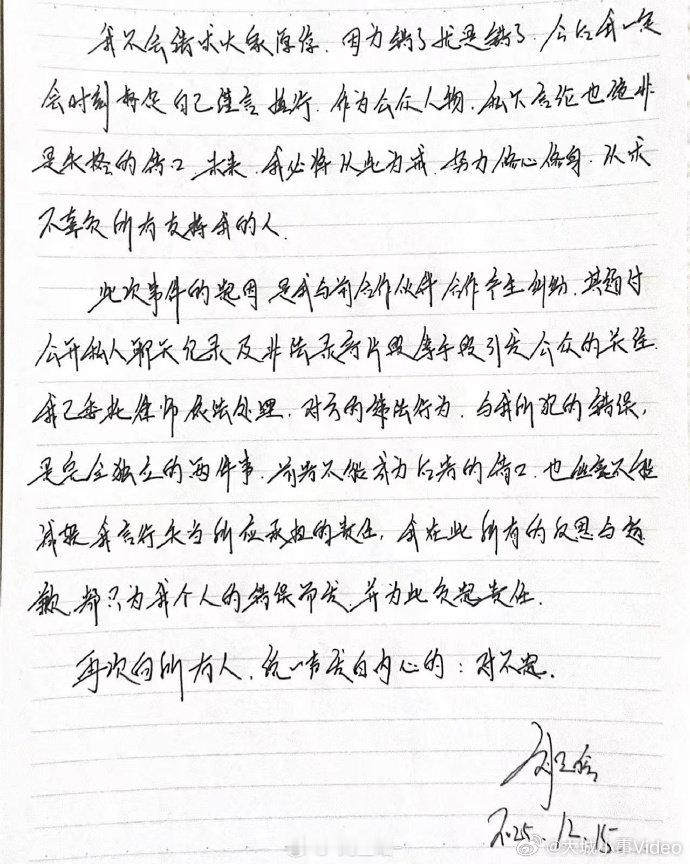 我不会请求大家原谅，因为错了就是错了，今后我一定
会时刻督促自己谨言慎行．作为公众人物，私下言论也绝非
是失格的借口．未来，我必将以此为戒，努力修心修身．以求
不辜负所有支持我的人．
此次事件的起因是我与前合作伙伴合作产生纠纷．其通过
公开私人聊天纪录及非法录音片段等手段引发公众的关注．
我已委托律师依法处理．对方的违法行为，与我所犯的错误，
是完全独立的两件事．前者不能成为后者的借口．也丝毫不能
减轻我言行失当所应承担的责任，我在此所有的反思与道
歉都只为我个人的错误而发．并为此负起责任．
再次向所有人．说一声发自内心的：对不起．
2025.12.15
@大城小事Video